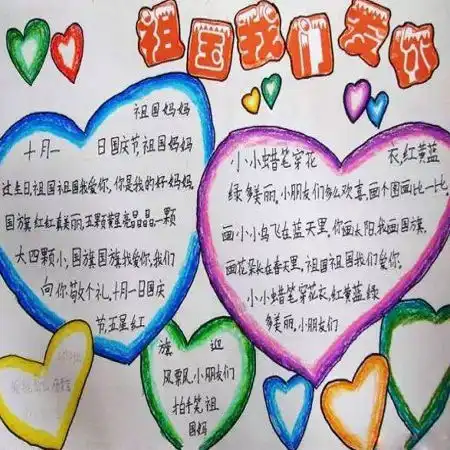 祖国我们爱你
祖国妈妈
十月一 日国庆节,祖国妈妈
过生日,祖国祖国我爱你,你是我的好妈妈,
国旗红红真美丽,五颗星亮晶晶一颗
大四颗小,国旗国旗我爱你,我们
向你敬个礼,十月一日国庆
节,五星红
小小蜡笔穿花 衣,红黄蓝
绿多美丽,小朋友们多么欢喜,画个图画比一比,
画小小鸟飞在蓝天里,你画太阳,我画国旗,
画花朵长在春天里,祖国祖国我们爱你。
小小蜡笔穿花衣,红黄蓝绿
多美丽,小朋友们
旗 迎
风飘,小朋友们
拍手笑,祖
国妈